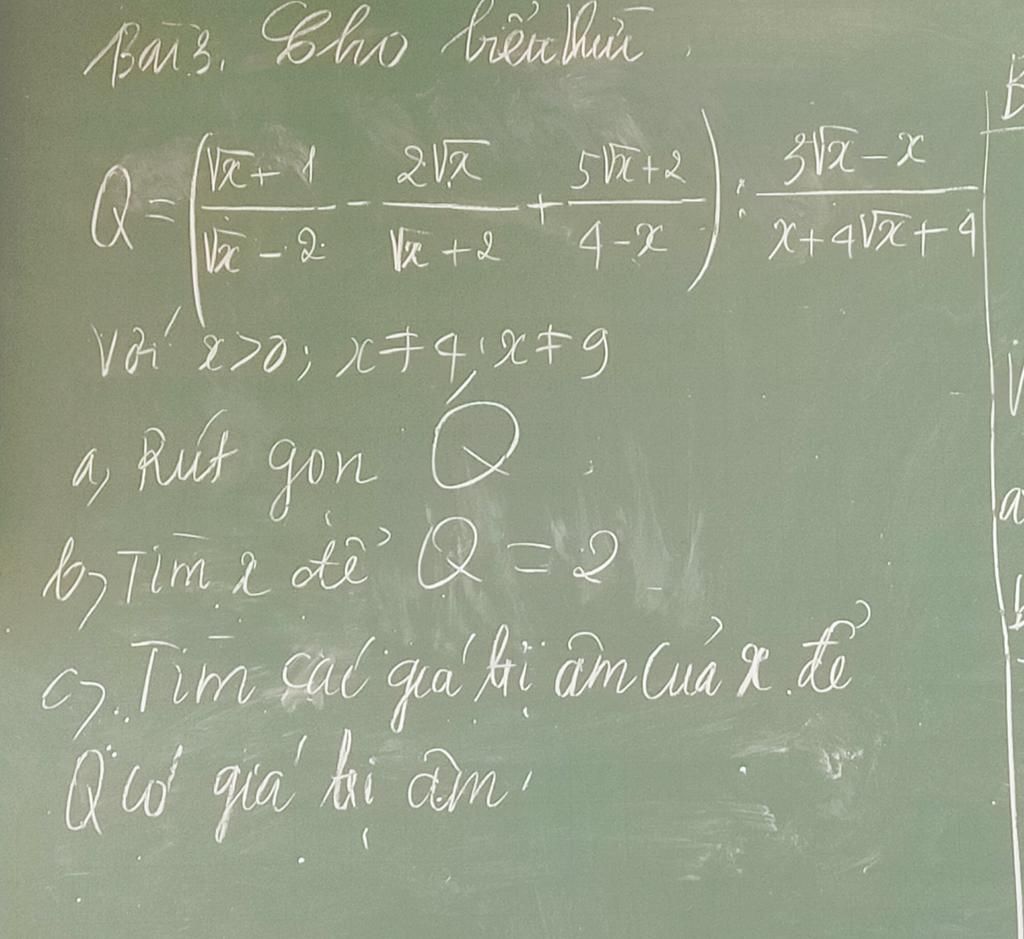 Bài 3. Cho biểu thức
Q = ( (√x + 1)/(√x - 2) - (2√x)/(√x + 2) + (5√x + 2)/(4 - x) ) : (3√x - x)/(x + 4√x + 4)
Với x > 0; x ≠ 4; x ≠ 9
a, Rút gọn Q
b, Tìm x để Q = 2
c, Tìm các giá trị âm của x để
Q có giá trị âm.